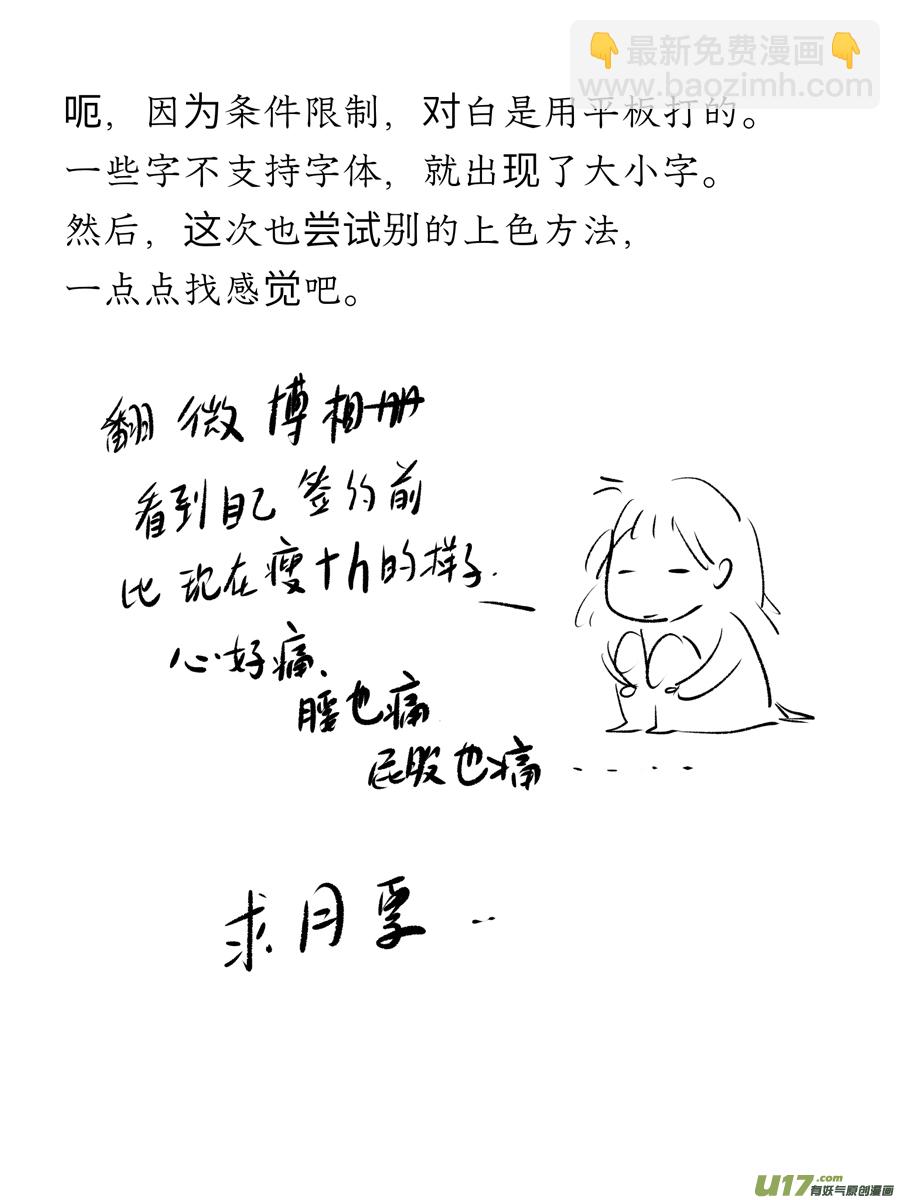 👇最新免费漫画👇
www.baozimh.com
呃，因为条件限制，对白是用平板打的。
一些字不支持字体，就出现了大小字。
然后，这次也尝试别的上色方法，
一点点找感觉吧。
翻微博相册
看到自己签约前
比现在瘦十斤的样子.
心好痛.
腰也痛
屁股也痛.....
求月票..
U17.com
有妖气原创漫画